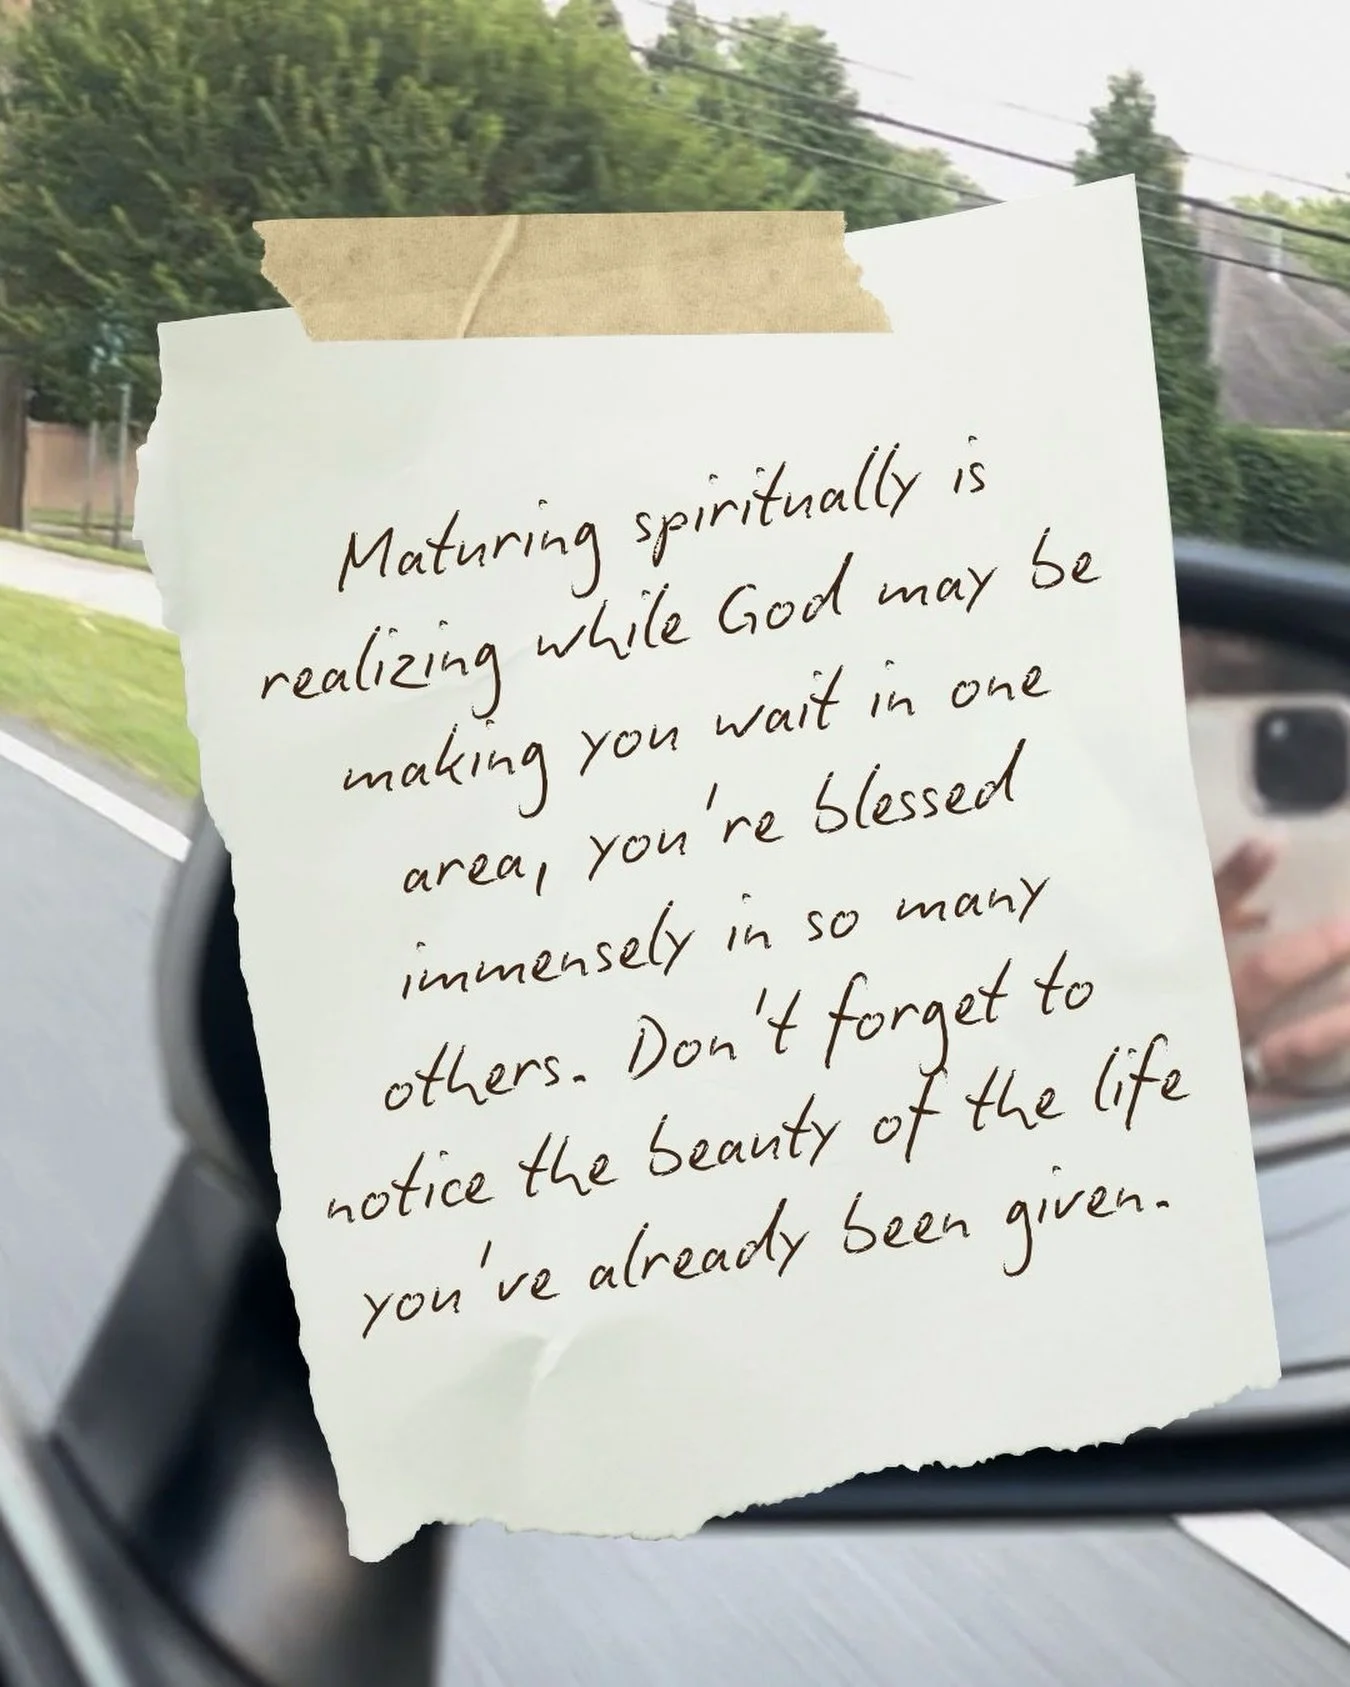 Maturing spiritually is
realizing while God may be
making you wait in one
area, you're blessed
immensely in so many
others. Don't forget to
notice the beauty of the life
you've already been given.